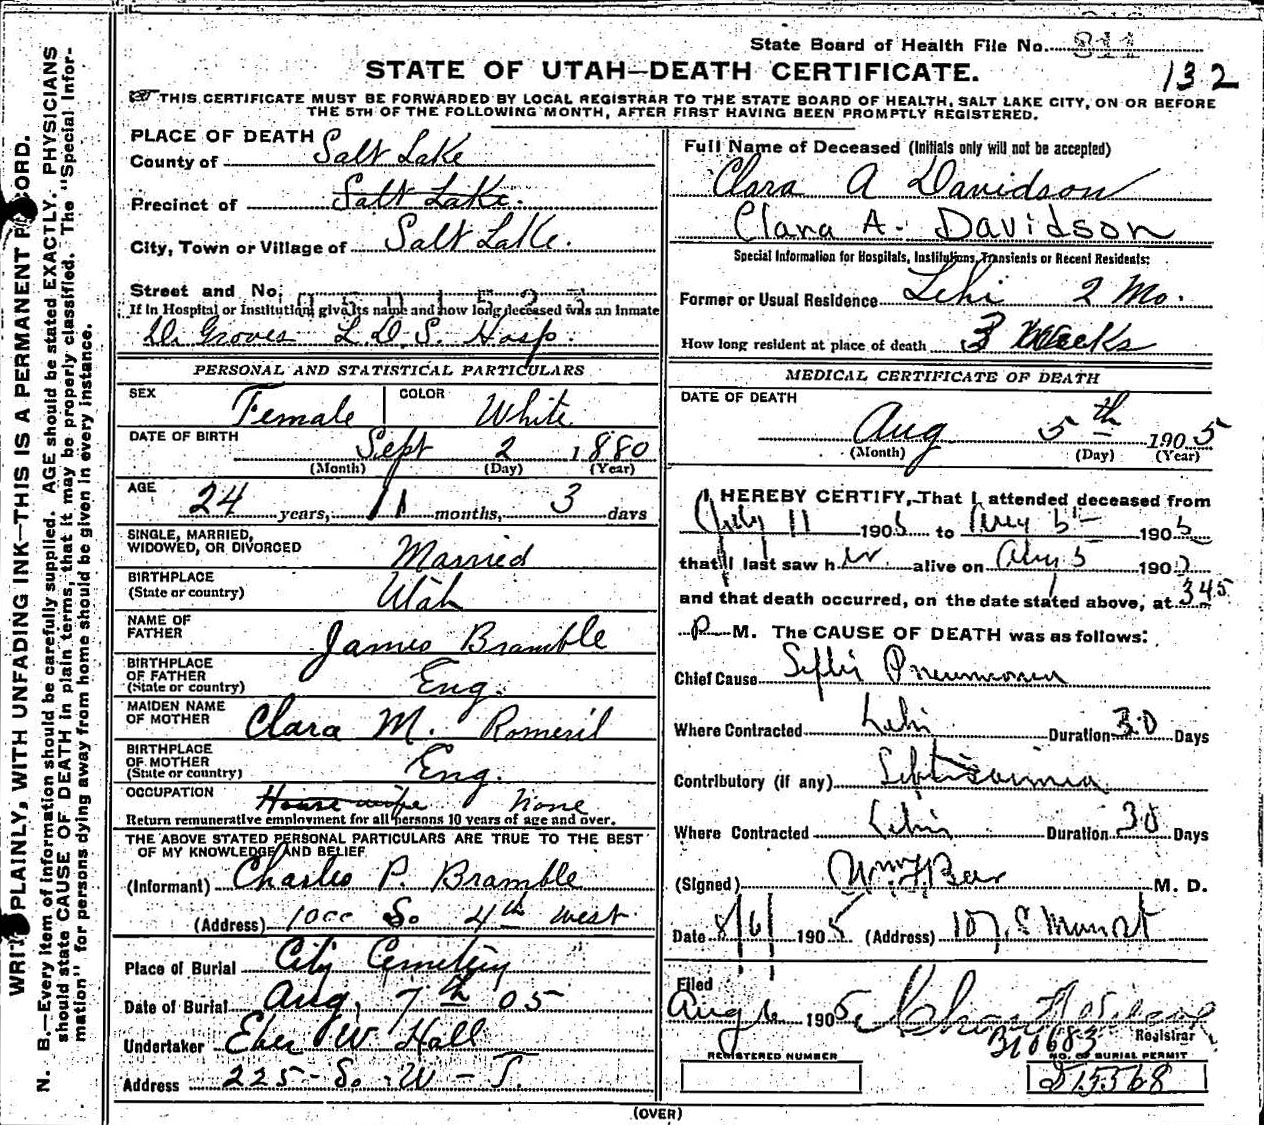 State Board of Health File No. 811
STATE OF UTAH—DEATH CERTIFICATE.
132
THIS CERTIFICATE MUST BE FORWARDED BY LOCAL REGISTRAR TO THE STATE BOARD OF HEALTH, SALT LAKE CITY, ON OR BEFORE
THE 5TH OF THE FOLLOWING MONTH, AFTER FIRST HAVING BEEN PROMPTLY REGISTERED.
PLACE OF DEATH
County of Salt Lake
Precinct of Salt Lake.
City, Town or Village of Salt Lake.
Street and No.
If in Hospital or Institution, give its name and how long deceased was an inmate
Dr Groves L. D. S. Hosp.
PERSONAL AND STATISTICAL PARTICULARS
SEX Female COLOR White
DATE OF BIRTH Sept 2 1880
(Month) (Day) (Year)
AGE 24 years, 11 months, 3 days
SINGLE, MARRIED,
WIDOWED, OR DIVORCED Married
BIRTHPLACE
(State or country) Utah
NAME OF
FATHER James Bramble
BIRTHPLACE
OF FATHER
(State or country) Eng.
MAIDEN NAME
OF MOTHER Clara M. Romeril
BIRTHPLACE
OF MOTHER
(State or country) Eng.
OCCUPATION House wife None
Return remunerative employment for all persons 10 years of age and over.
THE ABOVE STATED PERSONAL PARTICULARS ARE TRUE TO THE BEST
OF MY KNOWLEDGE AND BELIEF
(Informant) Charles P. Bramble
(Address) So 4th West.
Place of Burial City Cemetery
Date of Burial Aug. 7th 05
Undertaker Eber W Hall
Address 225 So. W - T.
Full Name of Deceased (Initials only will not be accepted)
Clara A Davidson
Clara A. Davidson
Special Information for Hospitals, Institutions, Transients or Recent Residents:
Former or Usual Residence Lehi 2 Mo.
How long resident at place of death 3 Weeks
MEDICAL CERTIFICATE OF DEATH
DATE OF DEATH
Aug 5th 1905
(Month) (Day) (Year)
I HEREBY CERTIFY, That I attended deceased from
July 11 1905 to Aug 5 1905
that I last saw her alive on Aug 5 190
and that death occurred, on the date stated above, at 3 45
P M. The CAUSE OF DEATH was as follows:
Chief Cause Septic Pneumonia
Where Contracted Lehi Duration 30 Days
Contributory (if any) Septisaemia
Where Contracted Lehi Duration 30 Days
(Signed) M. D.
Date 8/6/ 1905 (Address) 107 S Main St
Filed
Aug 6 1905
Registrar
B10683
REGISTERED NUMBER
NO. OF BURIAL PERMIT
15568
(OVER)
WRITE PLAINLY, WITH UNFADING INK—THIS IS A PERMANENT RECORD.
N. B.—Every item of information should be carefully supplied. AGE should be stated EXACTLY. PHYSICIANS
should state CAUSE OF DEATH in plain terms, that it may be properly classified. The "Special Infor-
mation" for persons dying away from home should be given in every instance.